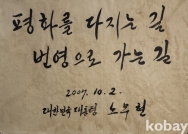 평화를 다지는 길
번영으로 가는 길
2007. 10. 2.
대한민국 대통령 노무현
kobay